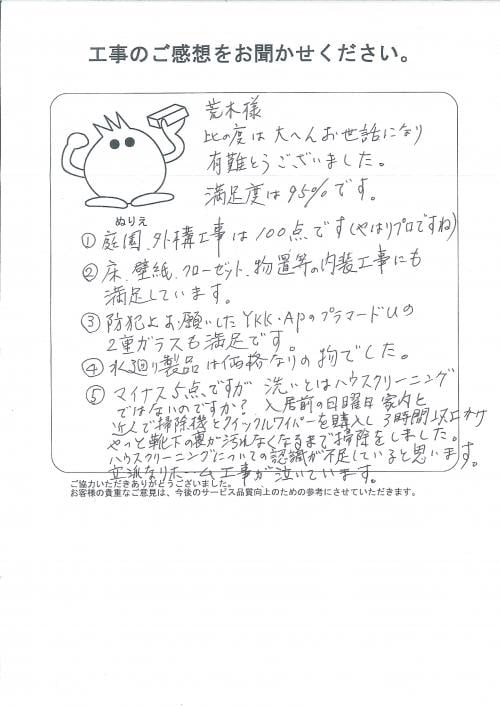 工事のご感想をお聞かせください。
荒木様
此の度は大へんお世話になり
有難とうございました。
満足度は95%です。
ぬりえ
① 庭園、外構工事は100点です(やはりプロですね)
② 床、壁紙、クローゼット、物置等の内装工事にも
満足しています。
③ 防犯上お願いしたYKK・APのプラマードUの
2重ガラスも満足です。
④ 水廻り製品は価格なりの物でした。
⑤ マイナス5点、ですが 洗いとはハウスクリーニング
ではないのですか? 入居前の日曜日家内と
二人で掃除機とクイックルワイパーを購入し3時間以上かけ
やっと靴下の裏が汚れなくなるまで掃除をしました。
ハウスクリーニングについての認識が不足していると思います。
立派なリホーム工事が泣いています。
ご協力いただきありがとうございました。
お客様の貴重なご意見は、今後のサービス品質向上のための参考にさせていただきます。